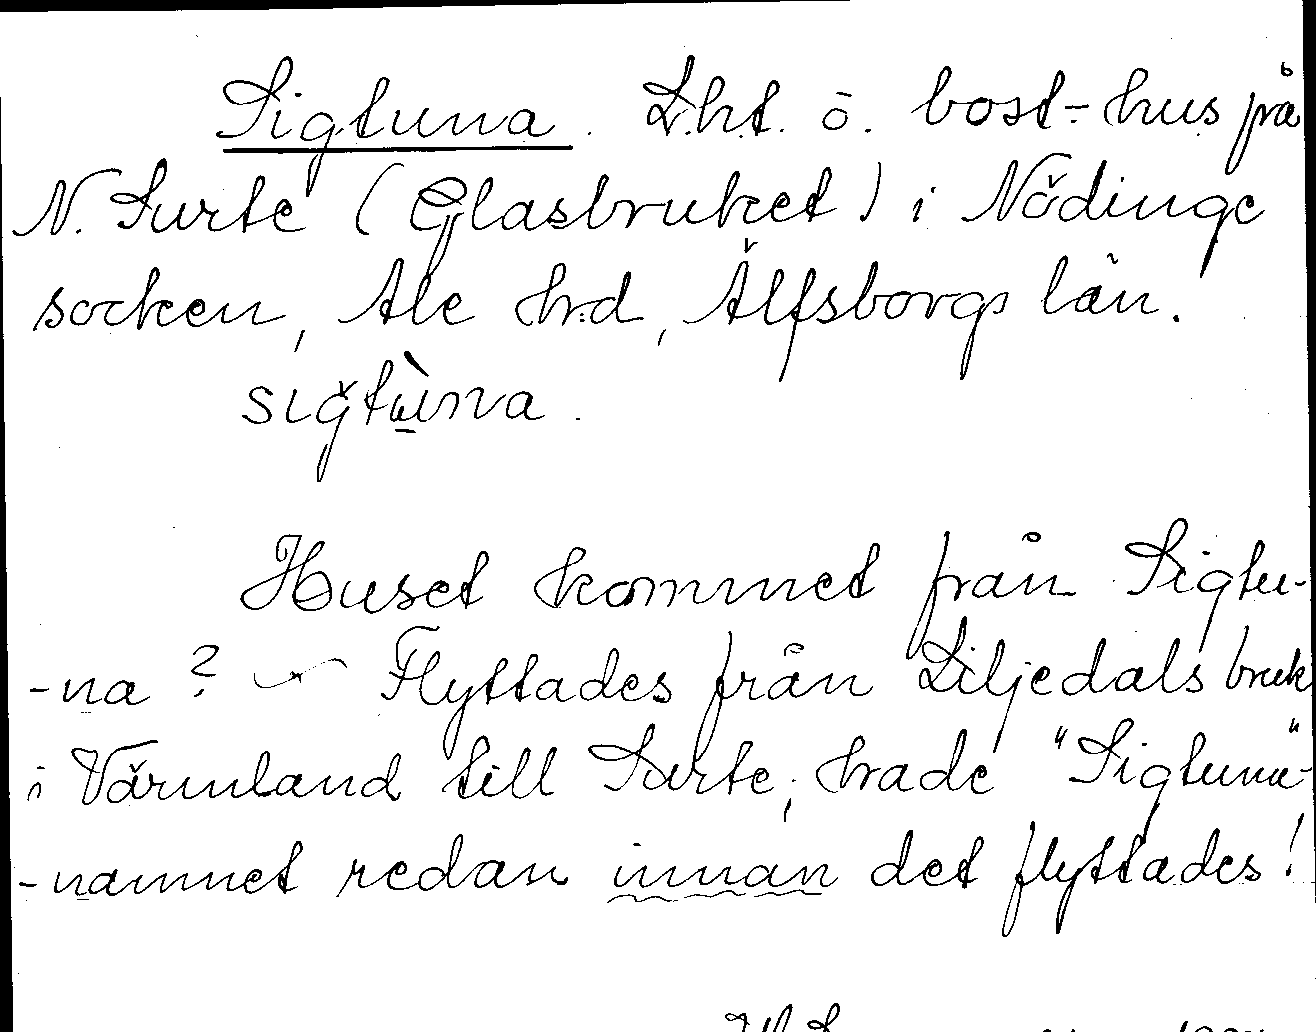 Sigtuna. Lht. o. bost-hus på
N. Surte (Glasbruket) i Nödinge
socken, Ale hd, Älfsborgs län.
sigtùna.
Huset kommet från Sigtu-
-na? Flyttades från Liljedals bruk
i Värmland till Surte; hade "Sigtuna"-
-namnet redan innan det flyttades!